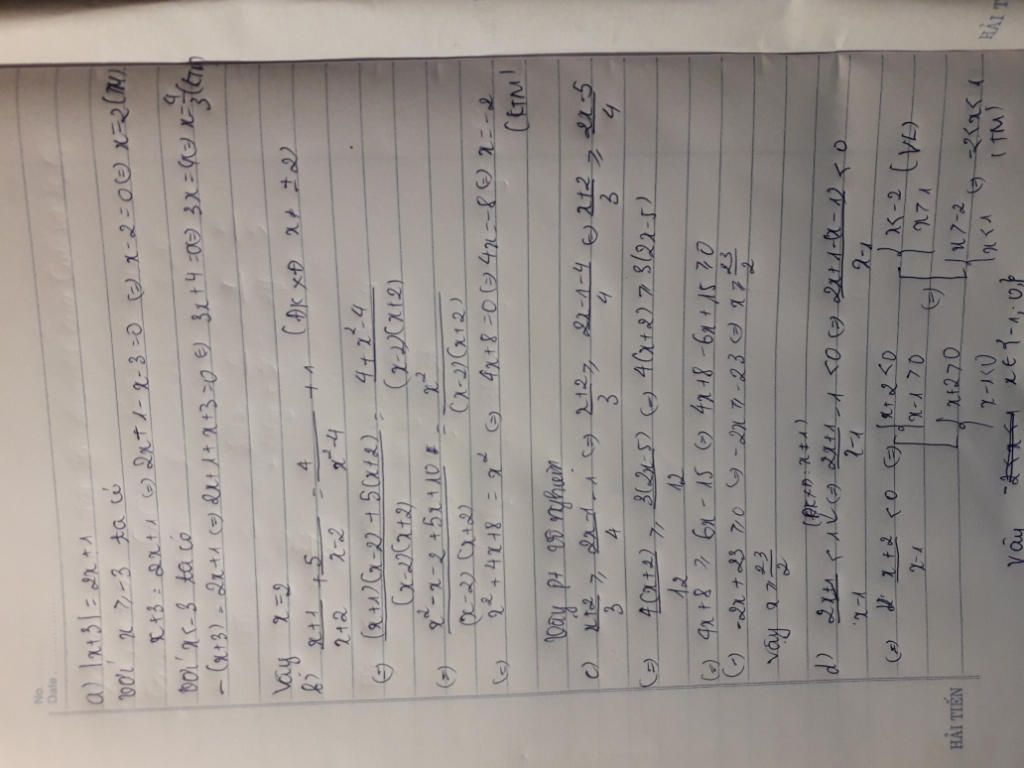 No.
Date
a) |x+3| = 2x+1
với x ≥ -3 ta có
x+3 = 2x+1 (=) 2x+1-x-3=0 (=) x-2=0 (=) x=2 (TM)
với x<-3 ta có
-(x+3) = 2x+1 (=) 2x+1+x+3=0 (=) 3x+4=0 (=) 3x=-4 (=) x=-4/3 (KTM)
Vậy x=2
b) (x+1)/(x+2) + 5/(x-2) = 4/(x²-4) + 1 (ĐKXĐ x ≠ ±2)
(=) ((x+1)(x-2)+5(x+2))/((x-2)(x+2)) = (4+x²-4)/((x-2)(x+2))
(=) (x²-x-2+5x+10)/((x-2)(x+2)) = x²/((x-2)(x+2))
(=) x²+4x+8 = x² (=) 4x+8=0 (=) 4x=-8 (=) x=-2
(KTM)
Vậy pt vô nghiệm
c) (x+2)/3 ≥ (2x-1)/4 - 1 (=) (x+2)/3 ≥ (2x-1-4)/4 (=) (x+2)/3 ≥ (2x-5)/4
(=) 4(x+2)/12 ≥ 3(2x-5)/12 (=) 4(x+2) ≥ 3(2x-5)
(=) 4x+8 ≥ 6x-15 (=) 4x+8-6x+15 ≥ 0
(=) -2x+23 ≥ 0 (=) -2x ≥ -23 (=) x ≥ 23/2
Vậy x ≥ 23/2
(ĐKXĐ: x ≠ 1)
d) (2x+1)/(x-1) < 1 (=) (2x+1)/(x-1) - 1 < 0 (=) (2x+1-x-1)/(x-1) < 0
(=) (x+2)/(x-1) < 0 (=) x+2<0 (=) x<-2 (VL)
x-1>0 x>1
x+2>0 x>-2 (=) -2<x<1
x-1<0 x<1 (TM)
Vậy x∈{-1;0}
HẢI TIẾN
HẢI T